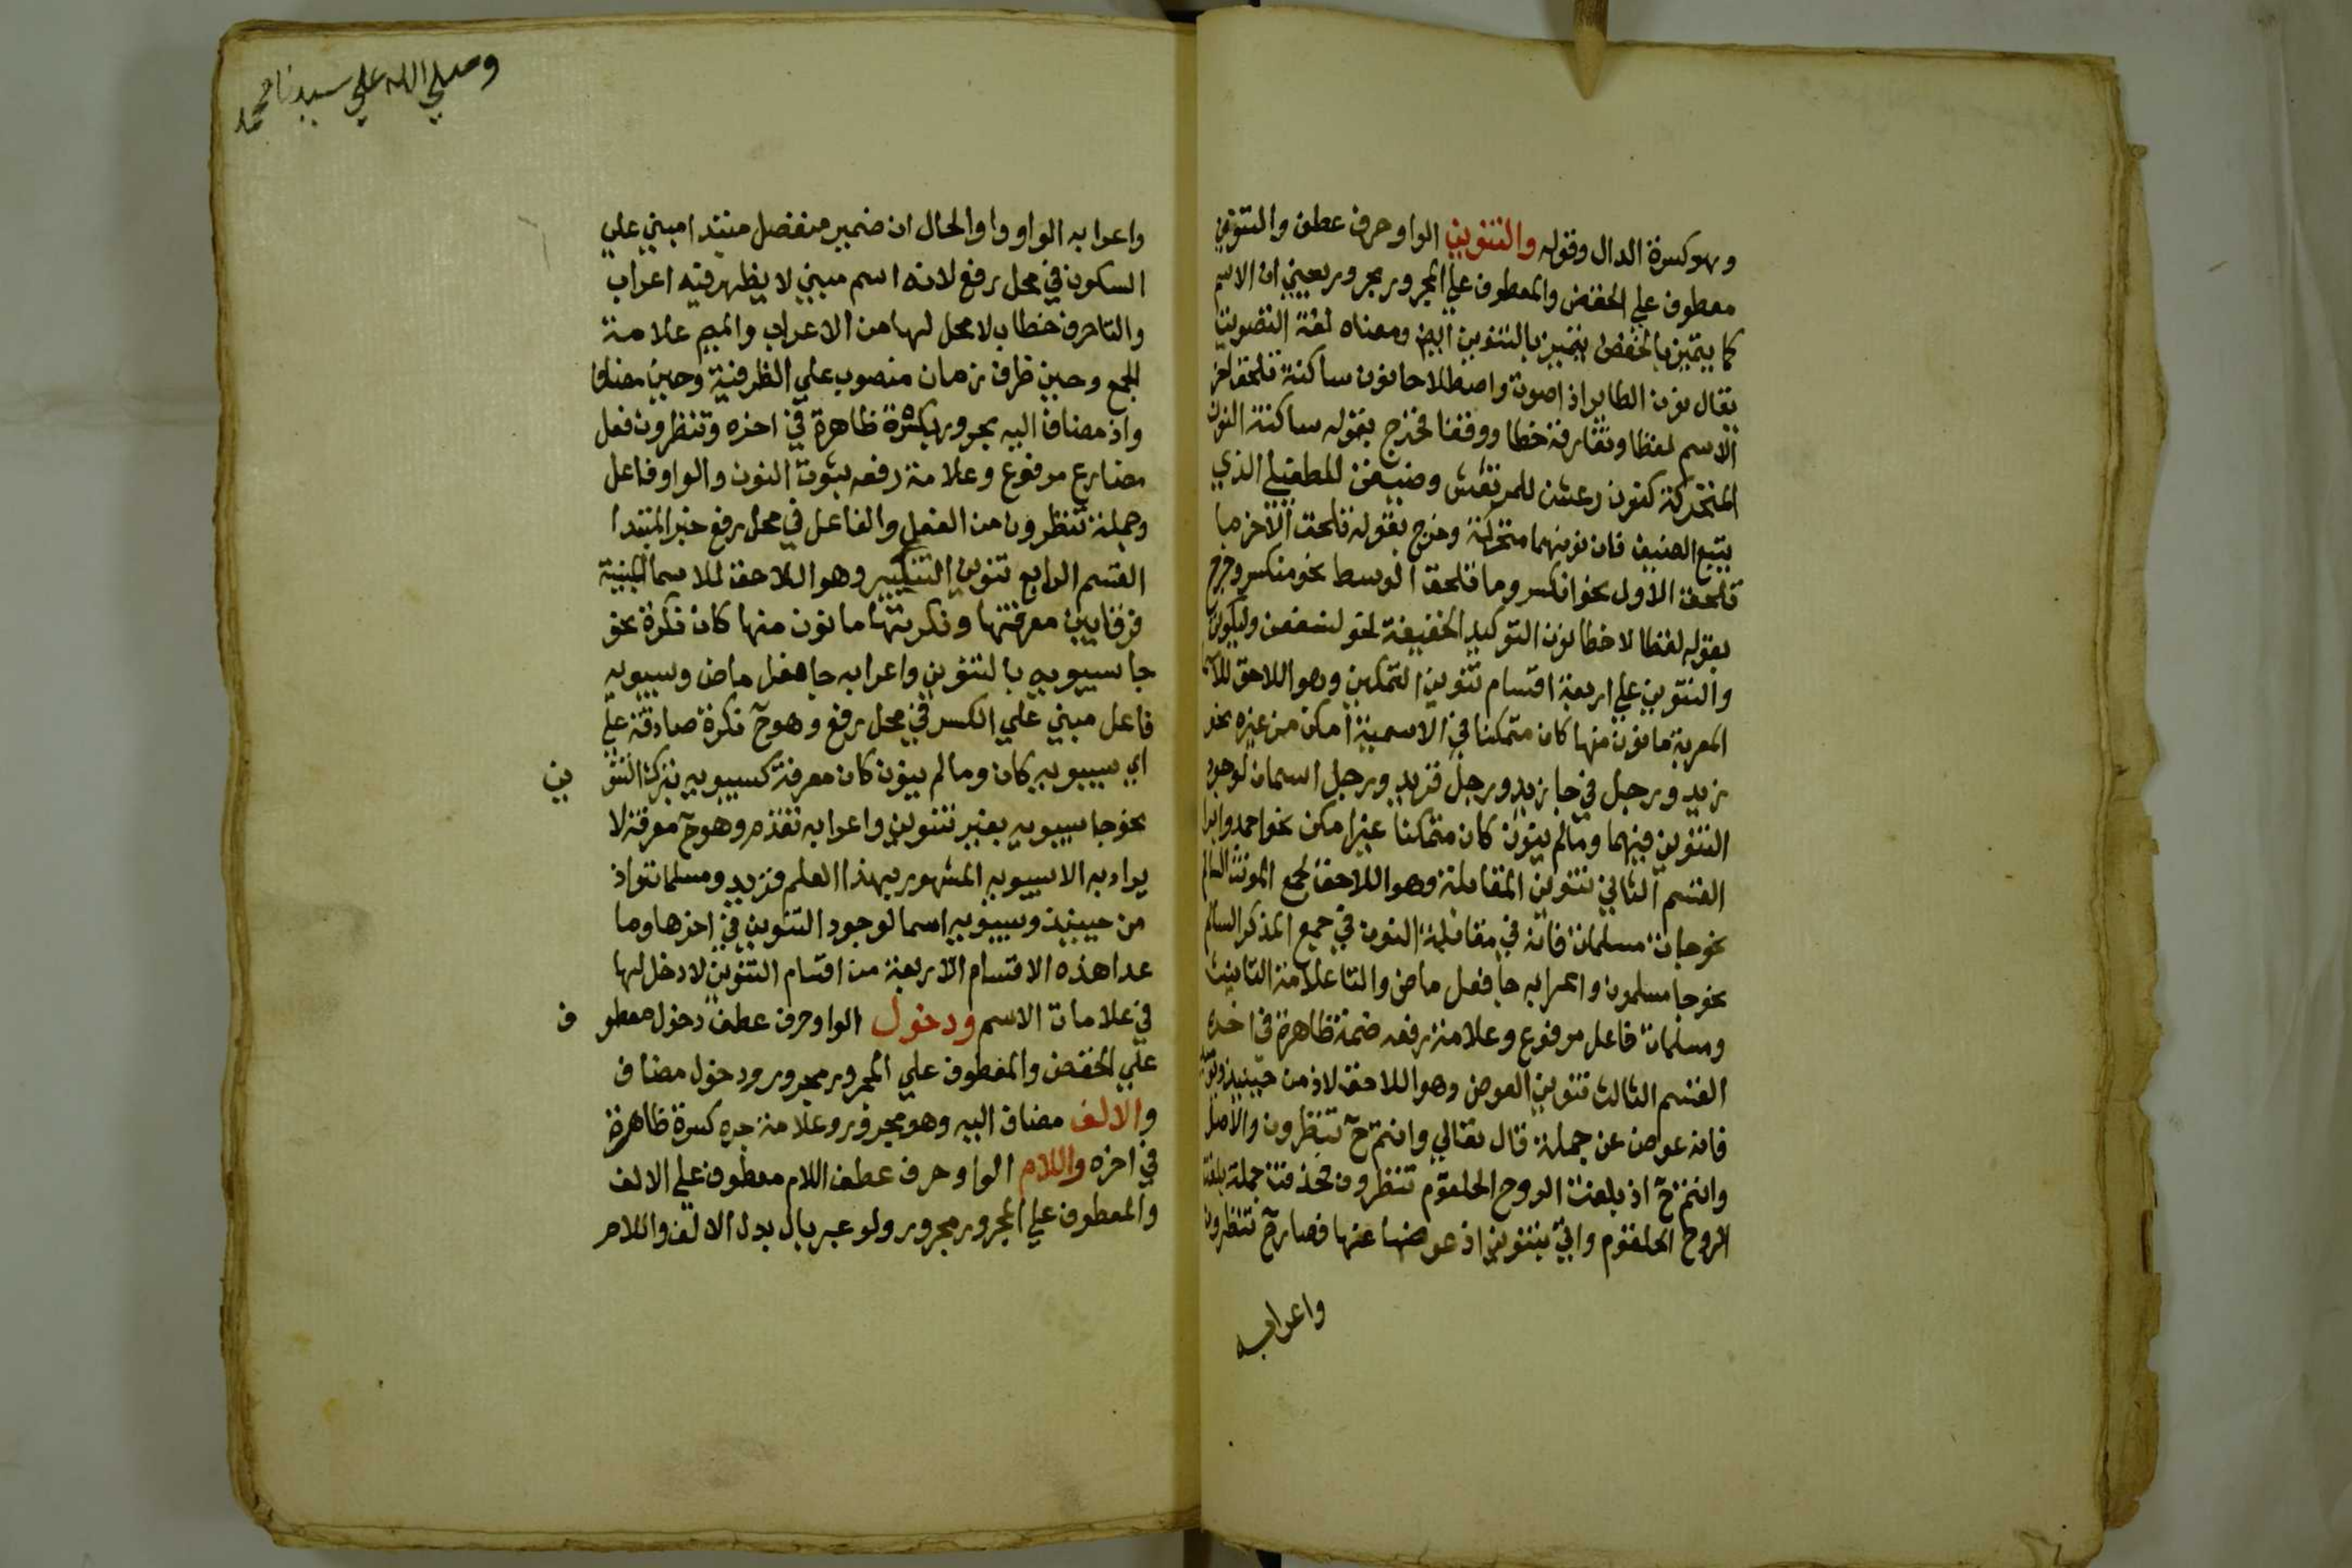 وهو كسرة الدال وقوله والتنوين الواو حرف عطف والتنوين
معطوف علي الخفض والمعطوف علي المجرور مجرور يعني ان الاسم
كما يتميز بالخفض يتميز بالتنوين ايضا ومعناه لغة التصويت
يقال نون الطاير اذا صوت واصطلاحا نون ساكنة تلحق اخر
الاسم لفظا وتفارقه خطا ووقفا فخرج بقوله ساكنة النون
المتحركة كنون رعشن للمرتعش وضيفن للطفيلي الذي
يتبع الضيف فان نونهما متحركة وخرج بقوله تلحق الاخر ما
تلحق الاول نحو انكسر وما تلحق الوسط نحو منكسر وخرج
بقوله لفظا لا خطا نون التوكيد الخفيفة نحو لنسفعن وليكون
والتنوين علي اربعة اقسام تنوين التمكين وهو اللاحق للاسما
المعربة ما نون منها كان متمكنا في الاسمية امكن من غيره نحو
زيد ورجل في جا زيد ورجل فزيد ورجل اسمان لوجود
التنوين فيهما وما لم ينون كان متمكنا غير امكن نحو احمد وابرا
القسم الثاني تنوين المقابلة وهو اللاحق لجمع المونث السالم
نحو جات مسلمات فانه في مقابلة النون في جمع المذكر السالم
نحو جا مسلمون واعرابه جا فعل ماض والتا علامة التانيث
ومسلمات فاعل مرفوع وعلامة رفعه ضمة ظاهرة في اخره
القسم الثالث تنوين العوض وهو اللاحق لاذ من حينيذ
فانه عوض عن جملة قال تعالي وانتم ح تنظرون والاصل
وانتم ح اذ بلغت الروح الحلقوم تنظرون فحذفت جملة بلغت
الروح الحلقوم واتي بتنوين اذ عوضا عنها فصار ح تنظرون
واعرابه
وصلي الله علي سيدنا محمد
واعرابه الواو واو الحال ان ضمير منفصل مبتدا مبني علي
السكون في محل رفع لانه اسم مبني لا يظهر فيه اعراب
والتا حرف خطاب لا محل لها من الاعراب والميم علامة
الجمع وحين ظرف زمان منصوب علي الظرفية وحين مضاف
واذ مضاف اليه مجرور بكسرة ظاهرة في اخره وتنظرون فعل
مضارع مرفوع وعلامة رفعه ثبوت النون والواو فاعل
وجملة تنظرون من الفعل والفاعل في محل رفع خبر المبتدا
القسم الرابع تنوين التنكير وهو اللاحق للاسما المبنية
فرقا بين معرفتها ونكرتها ما نون منها كان نكرة نحو
جا سيبويه بالتنوين واعرابه جا فعل ماض وسيبويه
فاعل مبني علي الكسر في محل رفع وهو ح نكرة صادقة علي
اي سيبويه كان وما لم ينون كان معرفة كسيبويه بترك التنو ين
نحو جا سيبويه بغير تنوين واعرابه تقدم وهو ح معرفة لا
يراد به الا سيبويه المشهور بهذا العلم فزيد ومسلمات واذ
من حينيذ وسيبويه اسما لوجود التنوين في اخرها وما
عدا هذه الاقسام الاربعة من اقسام التنوين لا دخل لها
في علامات الاسم ودخول الواو حرف عطف دخول معطو ف
علي الخفض والمعطوف علي المجرور مجرور ودخول مضاف
والالف مضاف اليه وهو مجرور وعلامة جره كسرة ظاهرة
في اخره واللام الواو حرف عطف اللام معطوف علي الالف
والمعطوف علي المجرور مجرور ولو عبر بال بدل الالف واللام